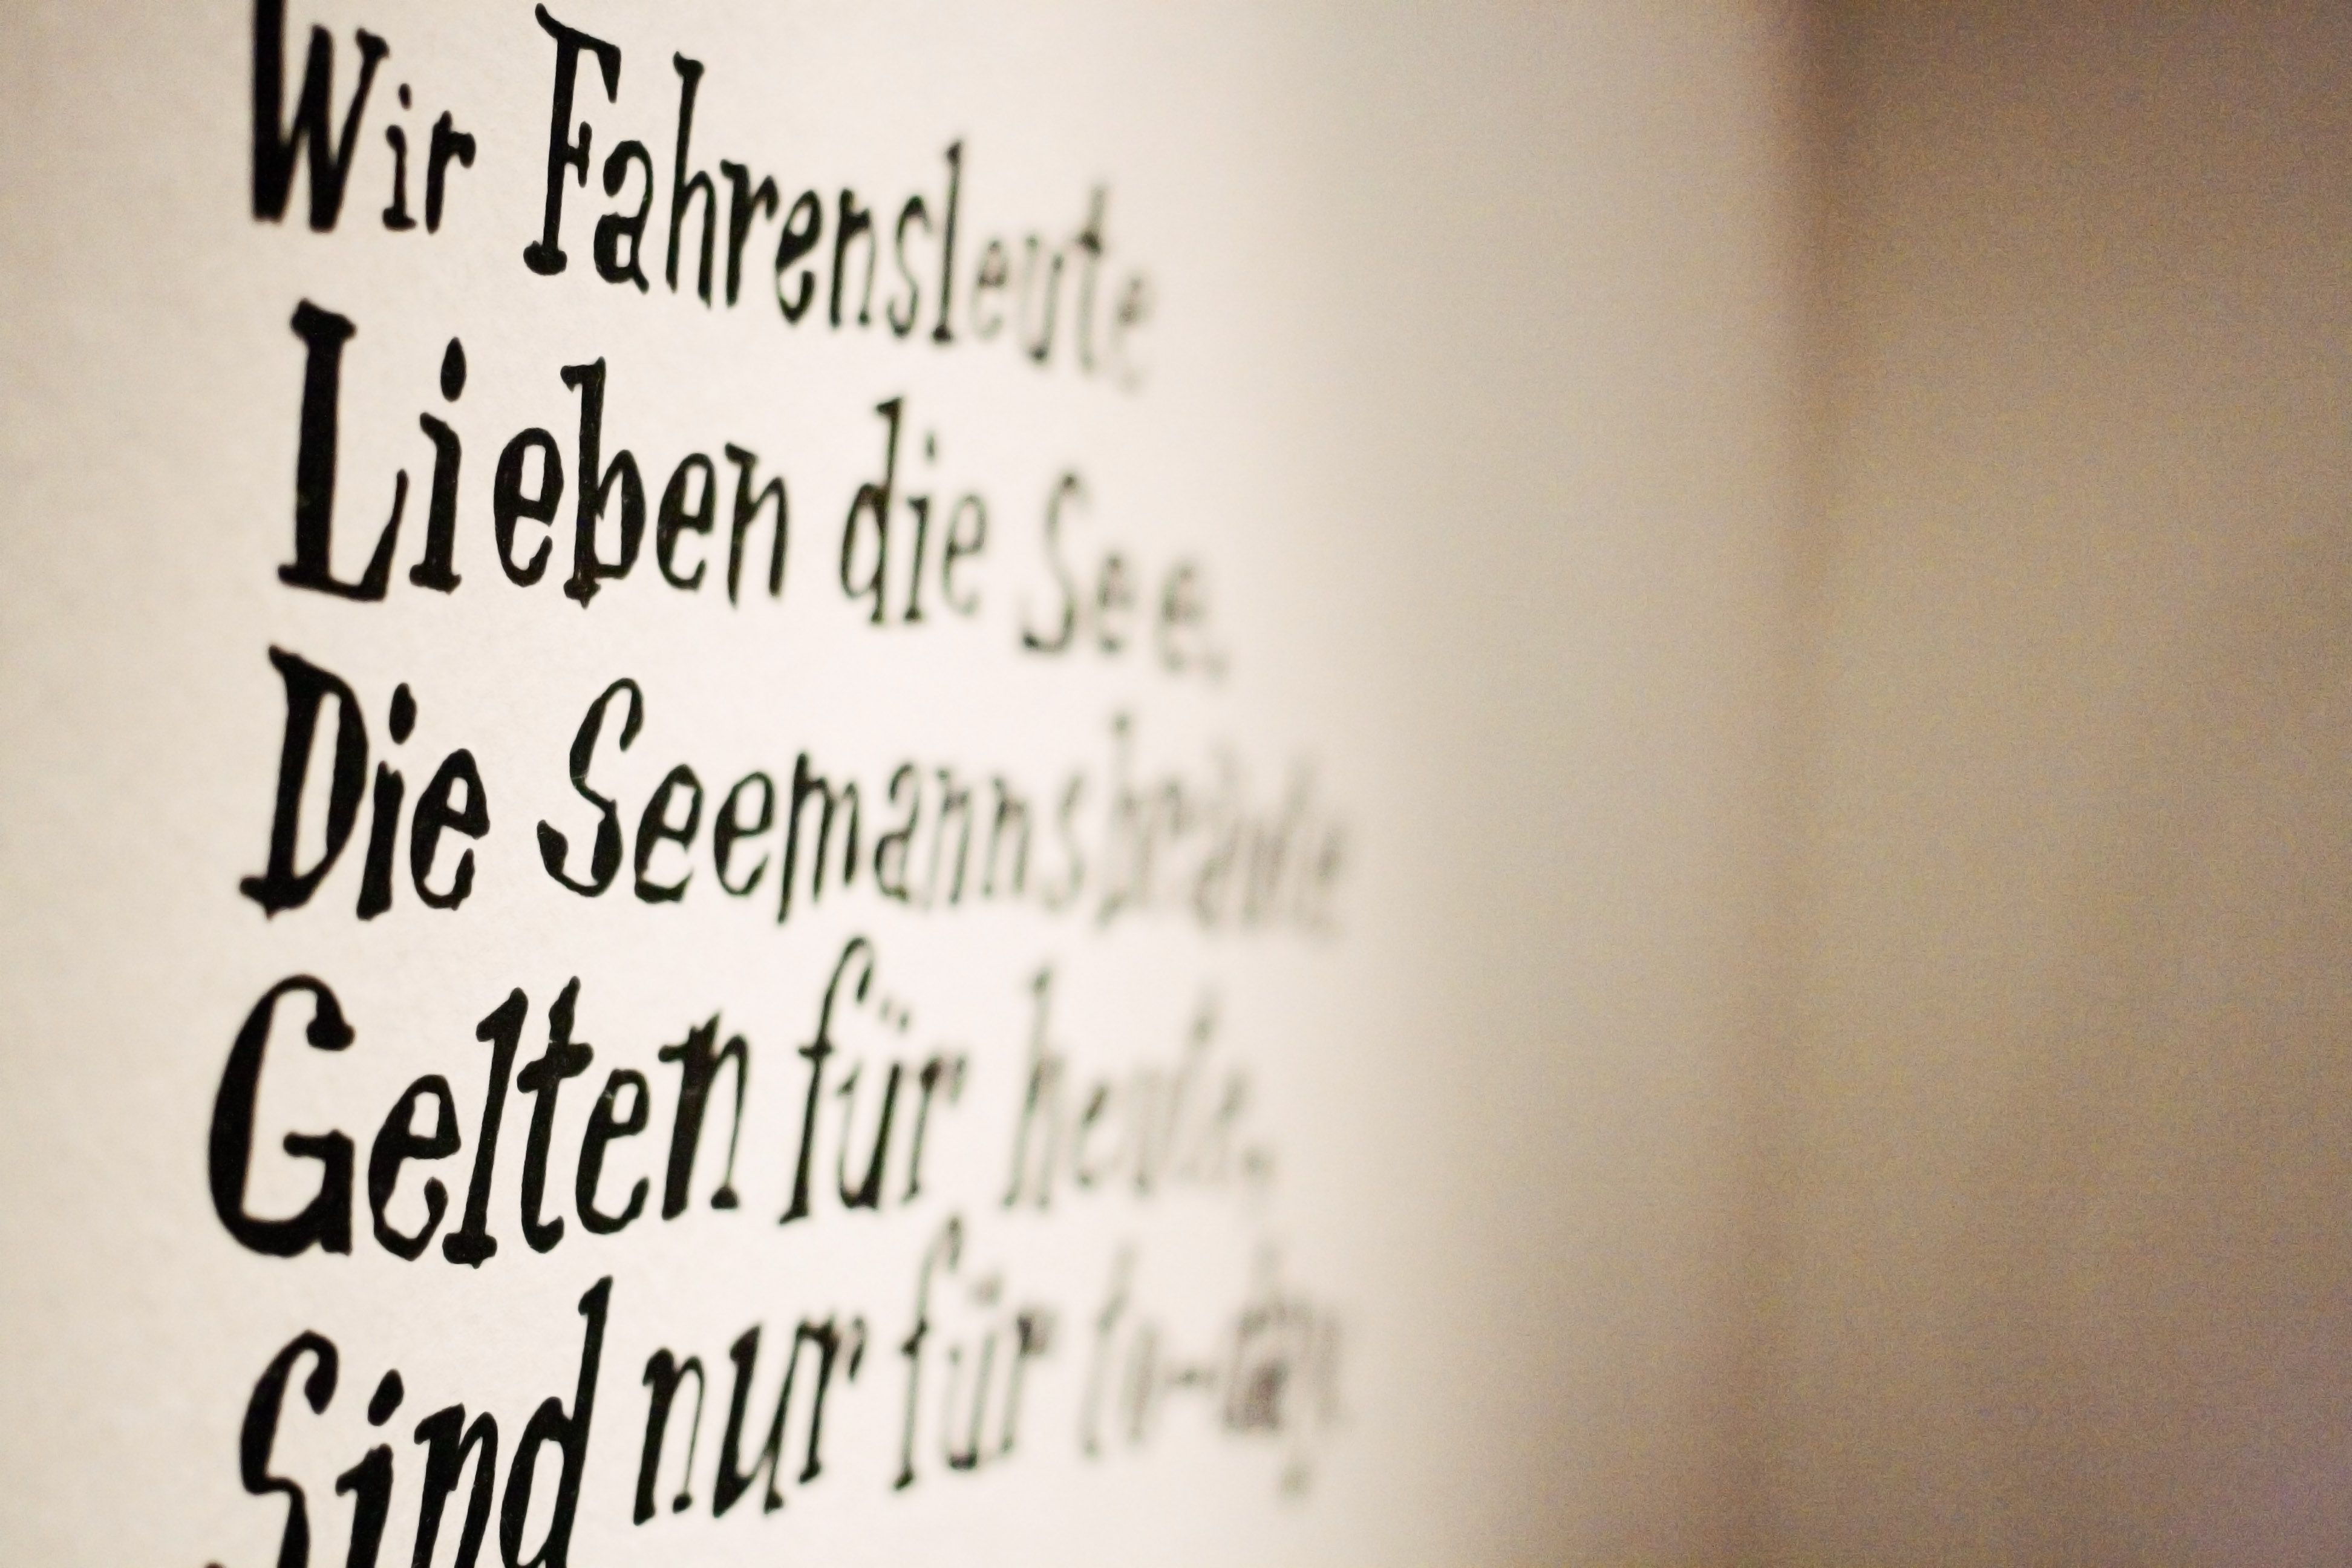 Wir Fahrensleute
Lieben die See.
Die Seemannsbräute
Gelten für heute,
Sind nur für to-day.